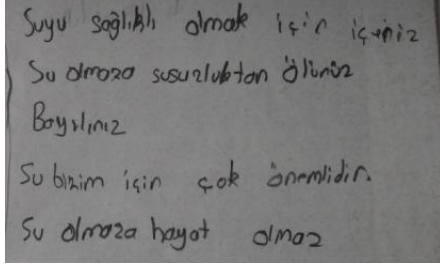 Suyu sağlıklı olmak için içeriz
Su olmaza susuzluktan ölürüz
Bayılırız
Su bizim için çok önemlidir.
Su olmaza hayat olmaz